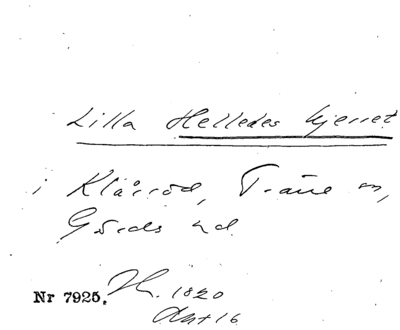 Lilla Helledes kjerret
i Klåröd, Träne sn,
Gärds hd
Nr 7925. 1820
Akt 16